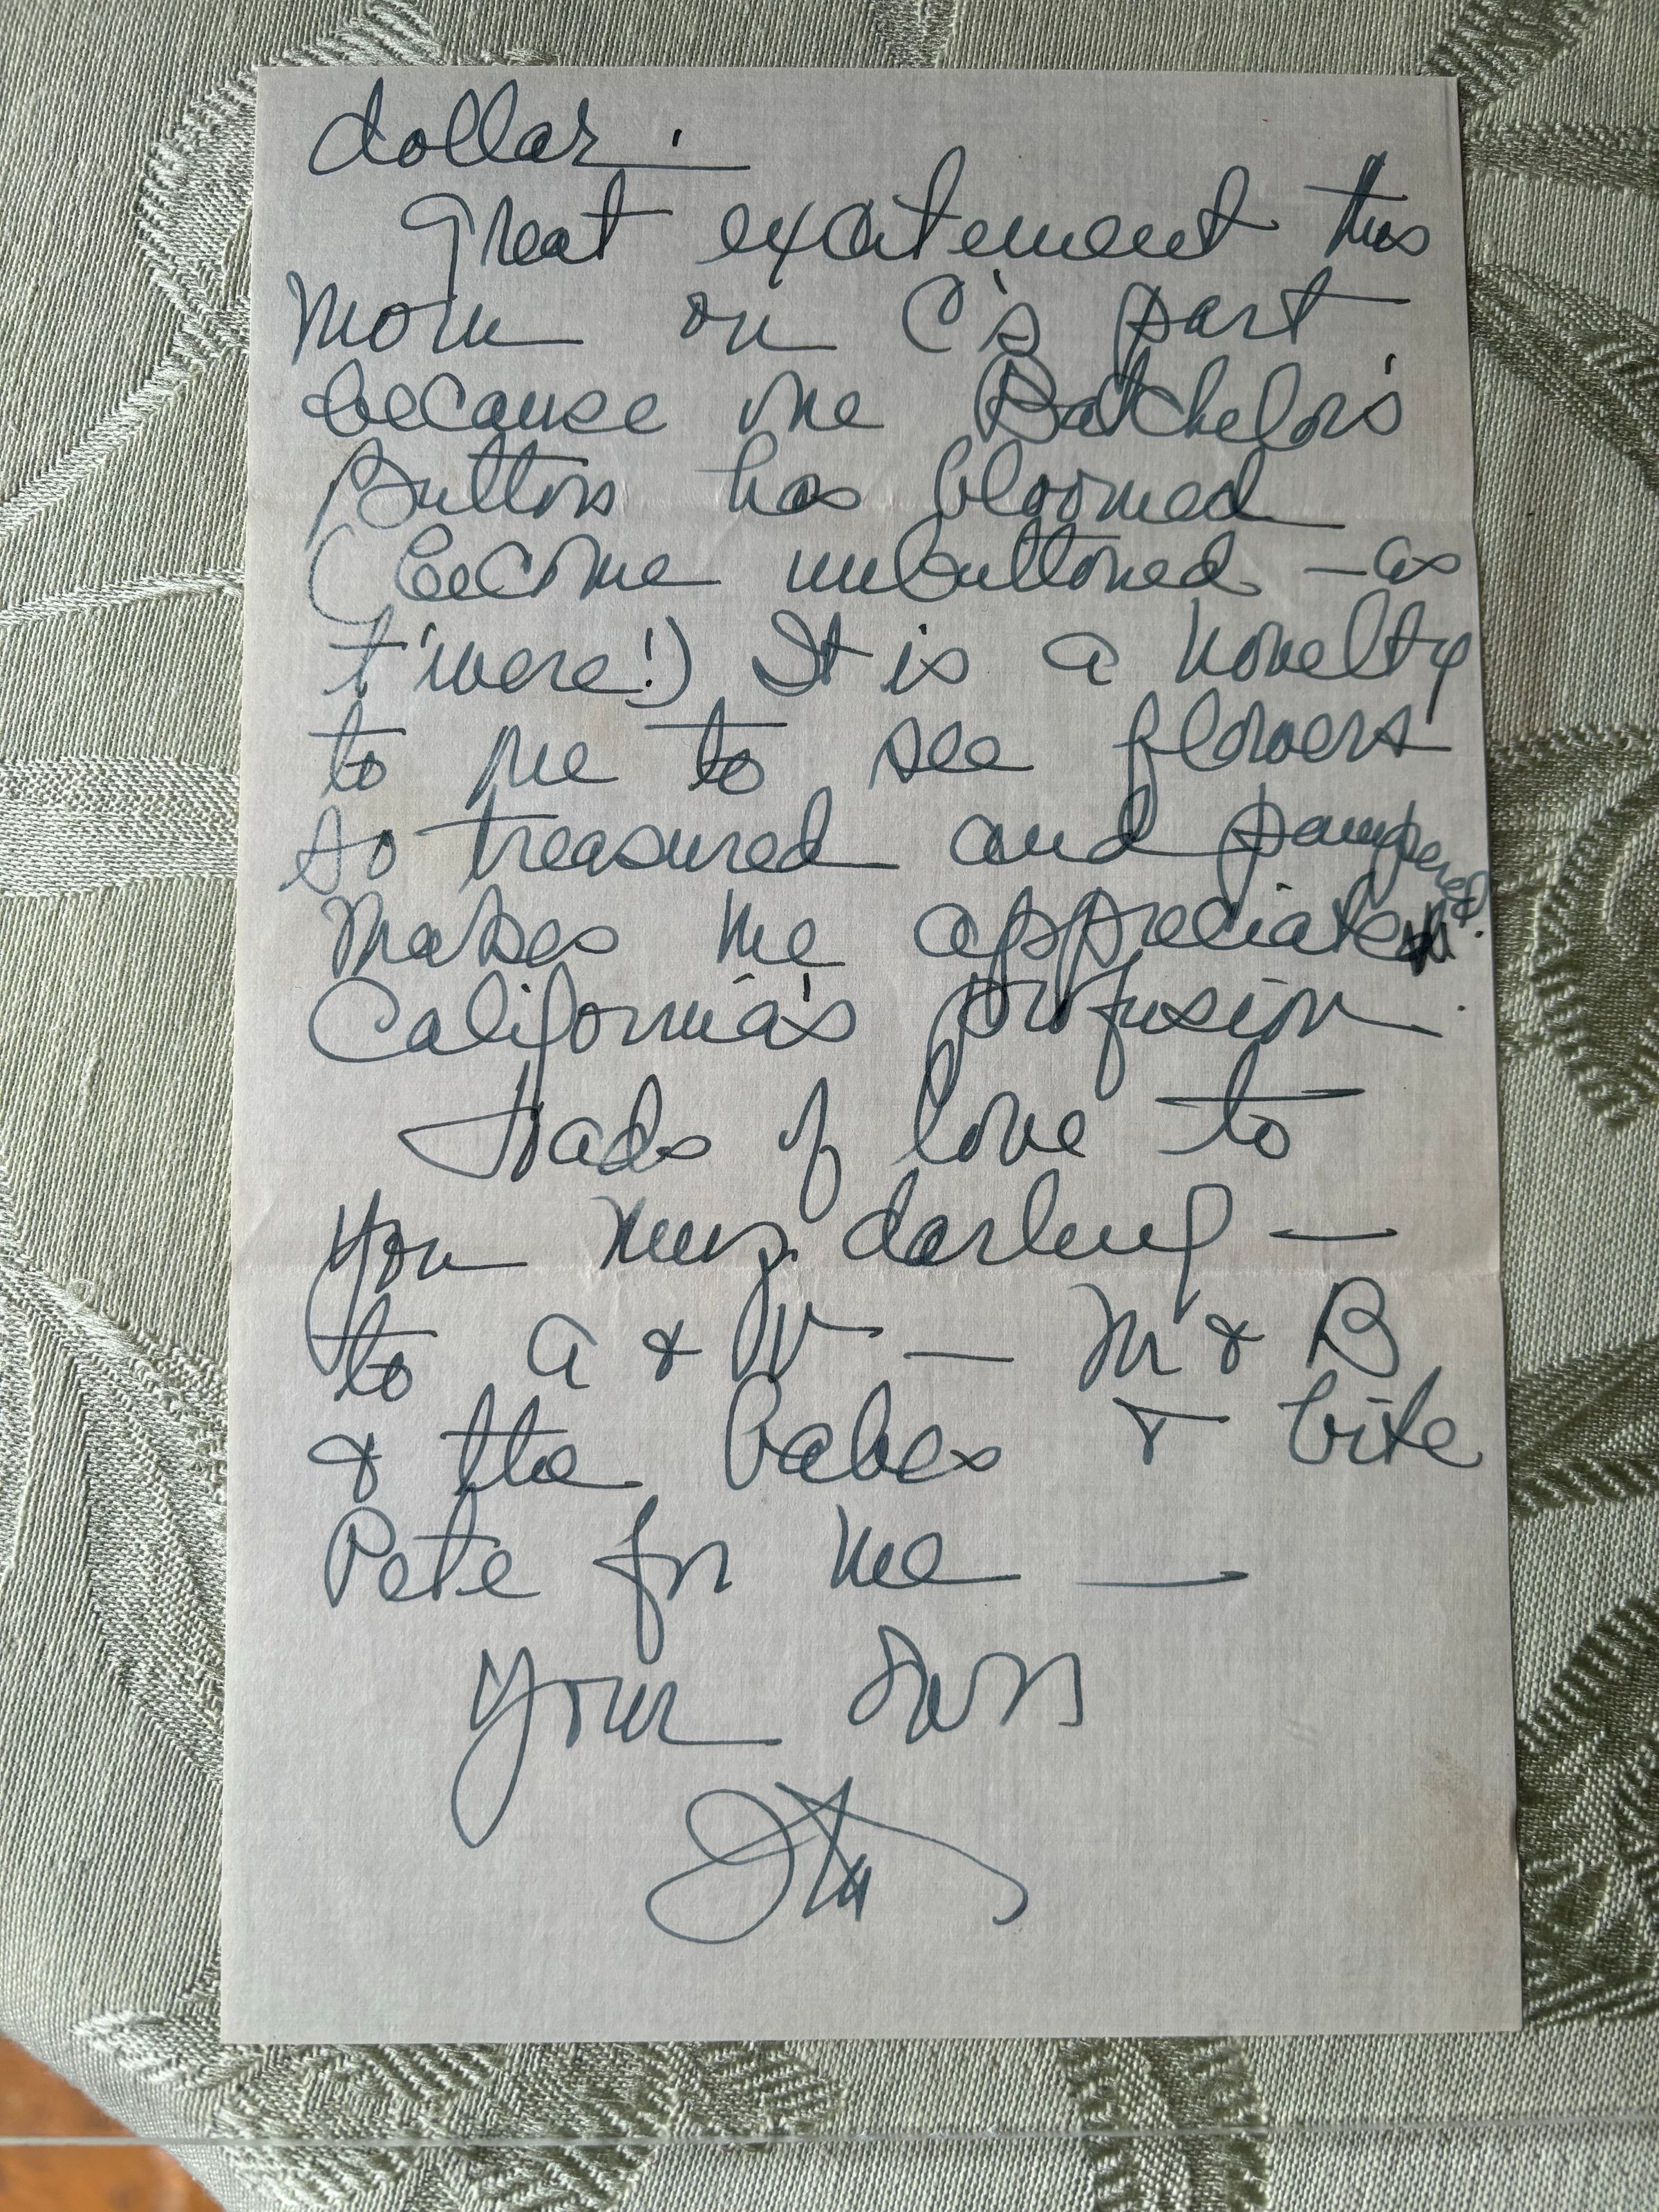 dollar.
Great excitement this
morn on C's part
because one Batchelor's
Button has bloomed
(become unbuttoned - as
t'were!) It is a novelty
to me to see flowers
so treasured and pampered.
Makes me appreciate
California's profusion.
Loads of love to
you my darling —
to A & V — M & B
& the babes & bite
Pete for me —
Your